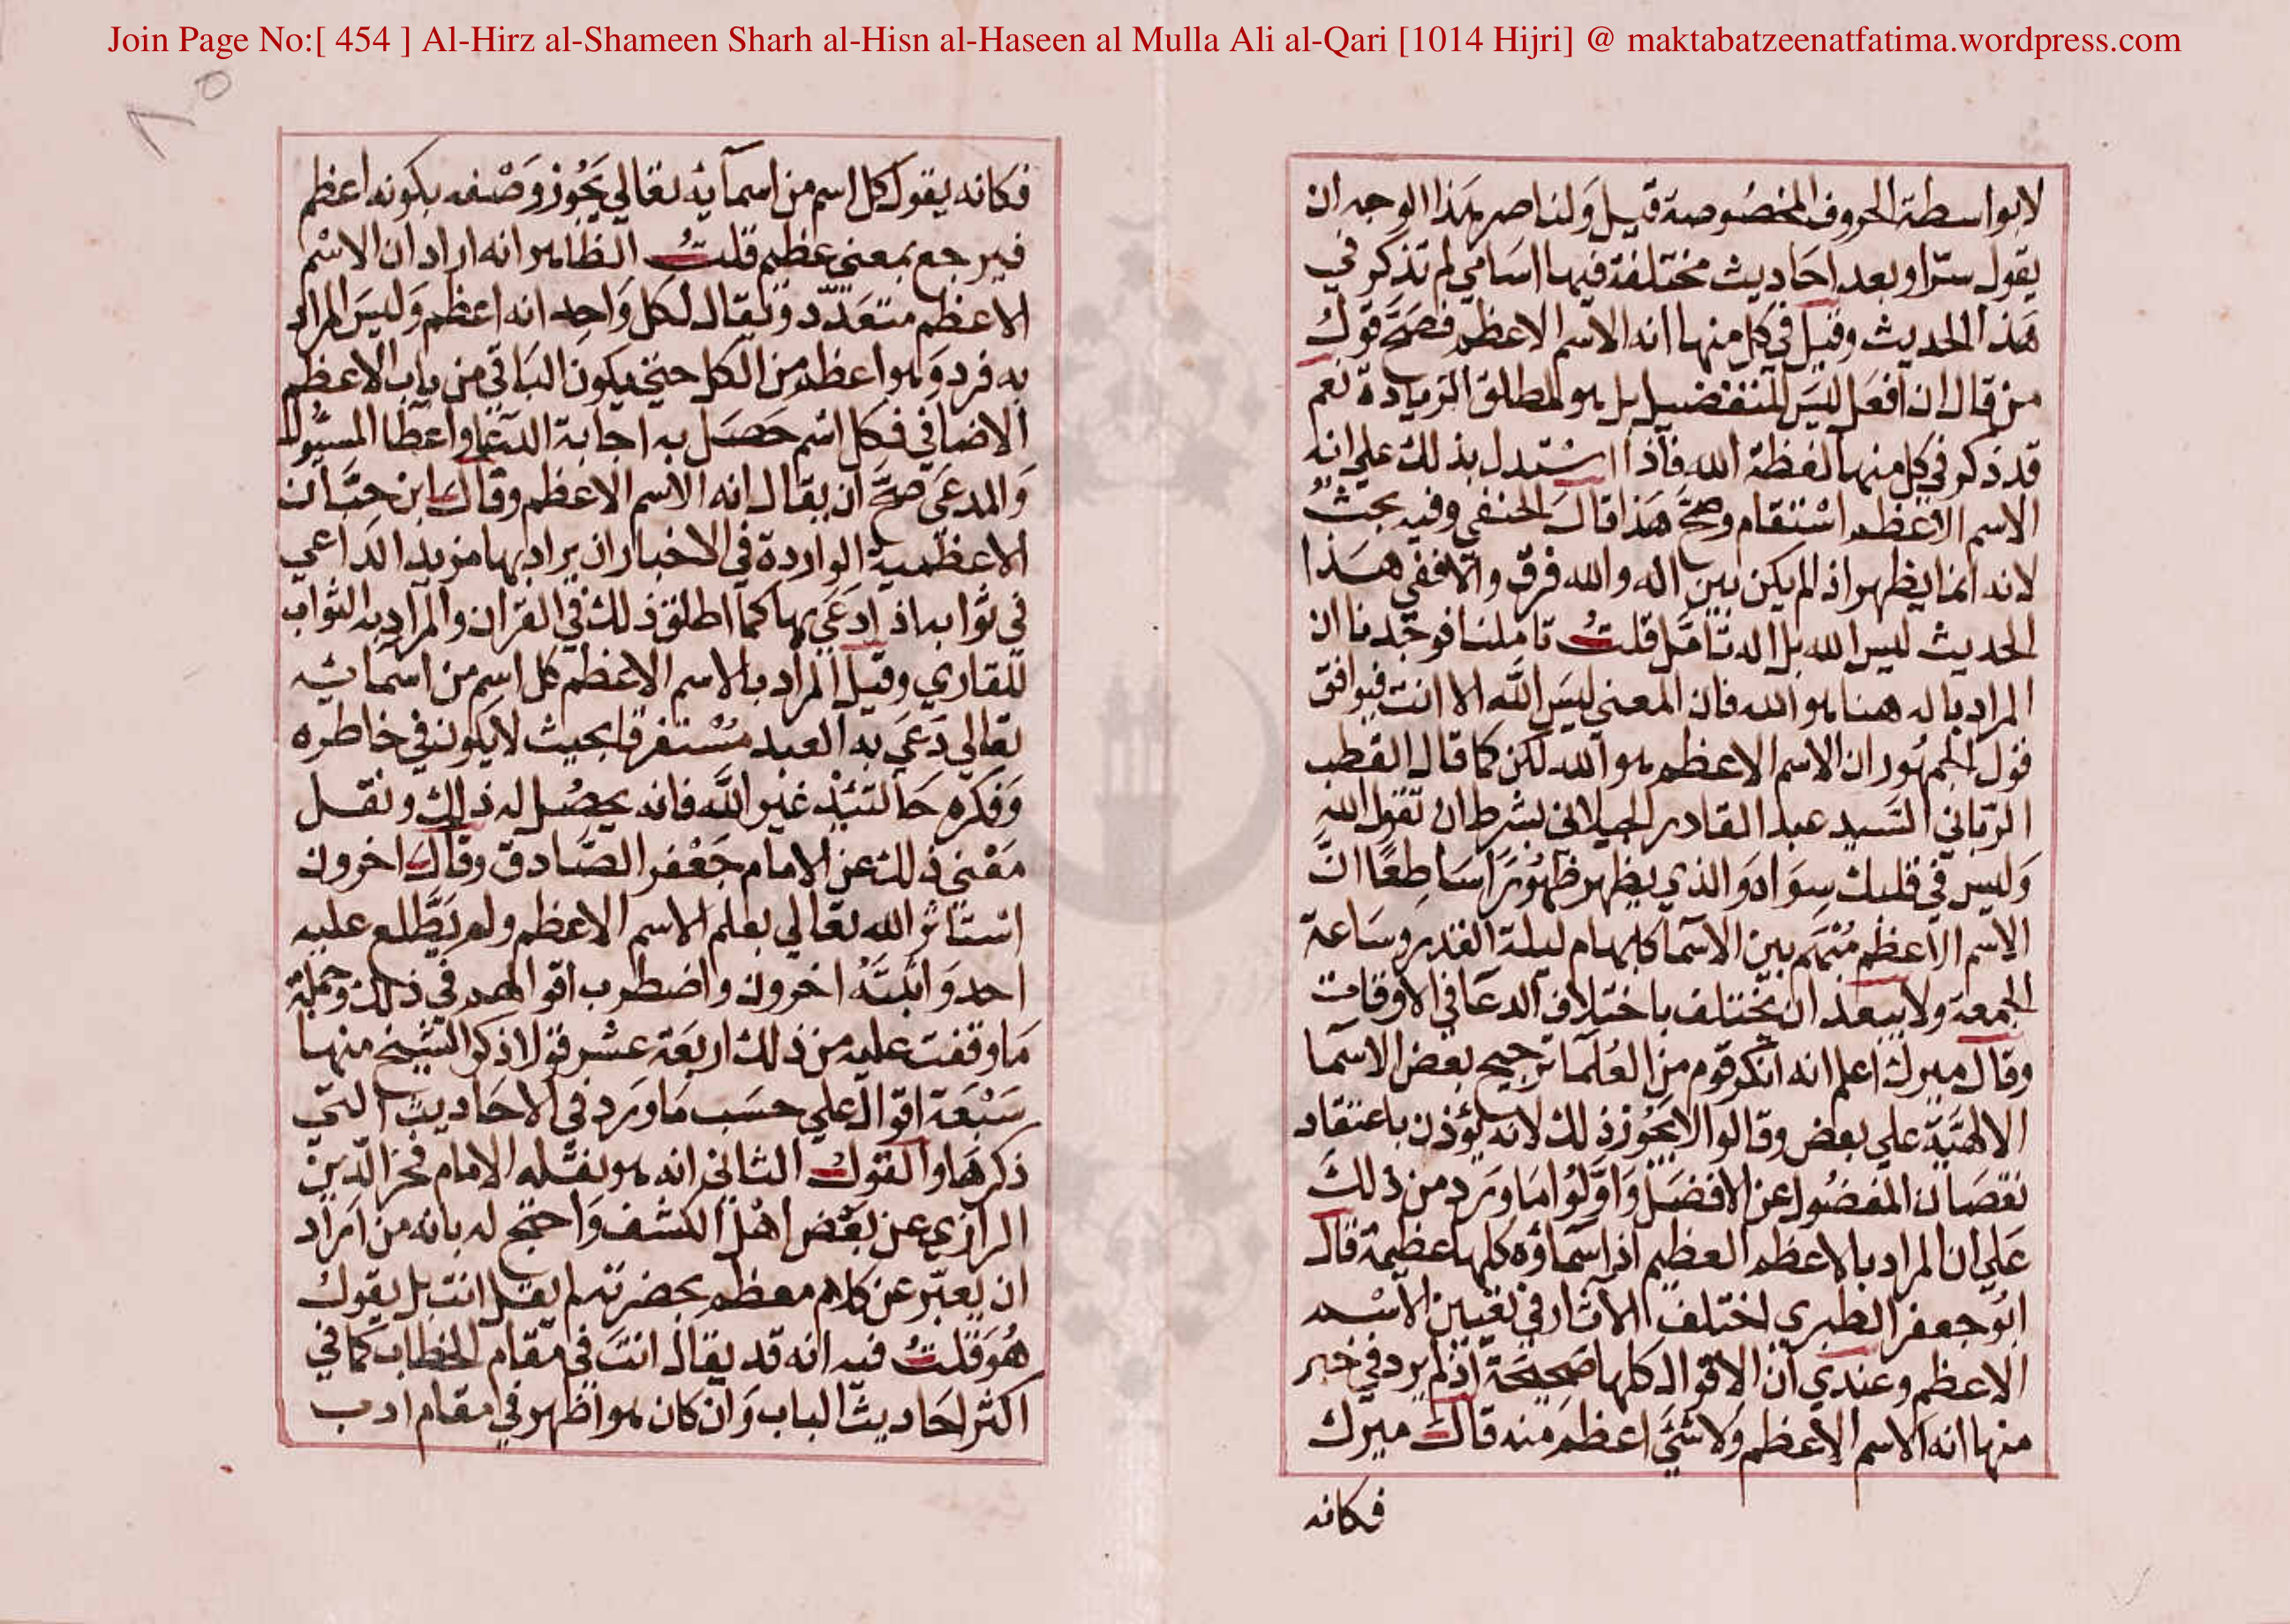 Join Page No:[ 454 ] Al-Hirz al-Shameen Sharh al-Hisn al-Haseen al Mulla Ali al-Qari [1014 Hijri] @ maktabatzeenatfatima.wordpress.com
٨٥
لابواسطة الحروف المخصوصة قيل ولناصر هذا الوجه ان
يقول ستراو بعد احاديث مختلفة فيها اسامي لم تذكر في
هذا الحديث وقيل في كل منها انه الاسم الاعظم فصح قول
من قال ان افعل ليس للتفضيل بل هو لمطلق الزيادة نعم
قد ذكر في كل منها لفظة الله فاذا استدل بذلك علي انه
الاسم الاعظم استقام وصح هذا قال الحنفي وفيه بحث
لانه انما يظهر اذ لم يكن بين اله والله فرق والا ففي هذا
الحديث ليس الله بل اله تامل قلت تاملنا فوجدنا ان
المراد باله هنا هو الله فان المعني ليس الله الا انت فيوافق
قول الجمهور ان الاسم الاعظم هو الله لكن كما قال القطب
الرباني السيد عبد القادر الجيلاني بشرط ان تقول الله
وليس في قلبك سواه والذي يظهر ظهورا ساطعا ان
الاسم الاعظم مبهم بين الاسما كلها م ليلة القدر وساعة
الجمعة ولا يبعد ان يختلف باختلاف الدعا في الاوقات
وقال ميرك اعلم انه انكر قوم من العلما ترجيح بعض الاسما
الالهية علي بعض وقالوا لا يجوز ذلك لانه يؤذن باعتقاد
نقصان المفضول عن الافضل واولوا ما ورد من ذلك
علي ان المراد بالاعظم العظيم اذ اسماؤه كلها عظيمة قال
ابو جعفر الطبري اختلف الاثار في تعيين الاسم
الاعظم وعندي ان الاقوال كلها صحيحة اذ لم يرد في خبر
منها انه الاسم الاعظم ولا شيء اعظم منه قال ميرك
فكانه
فكانه يقول كل اسم من اسمايه تعالي يجوز وصفه بكونه اعظم
فيرجع بمعني عظيم قلت الظاهر انه اراد ان الاسم
الاعظم متعدد ويقال لكل واحد انه اعظم وليس المراد
به فرد وهو اعظم من الكل حتي يكون الباقي من باب الاعظم
الاضافي فكل اسم حصل به اجابة الدعا واعطا المسئول
والمدعي صح ان يقال انه الاسم الاعظم وقال ابن حبان
الاعظمية الواردة في الاخبار ان يراد بها مزيد الداعي
في ثوابه اذ ادعي بها كما اطلق ذلك في القران والمراد به الثواب
للقاري وقيل المراد بالاسم الاعظم كل اسم من اسمائه
تعالي دعي به العبد مستغرقا بحيث لا يكون في خاطره
وفكره حالتئذ غير الله فانه يحصل له ذلك ونقل
معني ذلك عن الامام جعفر الصادق وقال اخرون
استاثر الله تعالي بعلم الاسم الاعظم ولم يطلع عليه
احد واثبته اخرون واضطرب اقوالهم في ذلك وجملة
ما وقفت عليه من ذلك اربعة عشر قولا ذكر الشيخ منها
سبعة اقوال علي حسب ما ورد في الاحاديث التي
ذكرها والقول الثاني انه هو نقله الامام فخر الدين
الرازي عن بعض اهل الكشف واحتج له بانه من اراد
ان يعبر عن كلام معظم بحضرته لم يقل انت بل يقول
هو قلت فيه انه قد يقال انت في مقام الخطاب كما في
اكثر احاديث الباب وان كان هو اظهر في مقام ادب